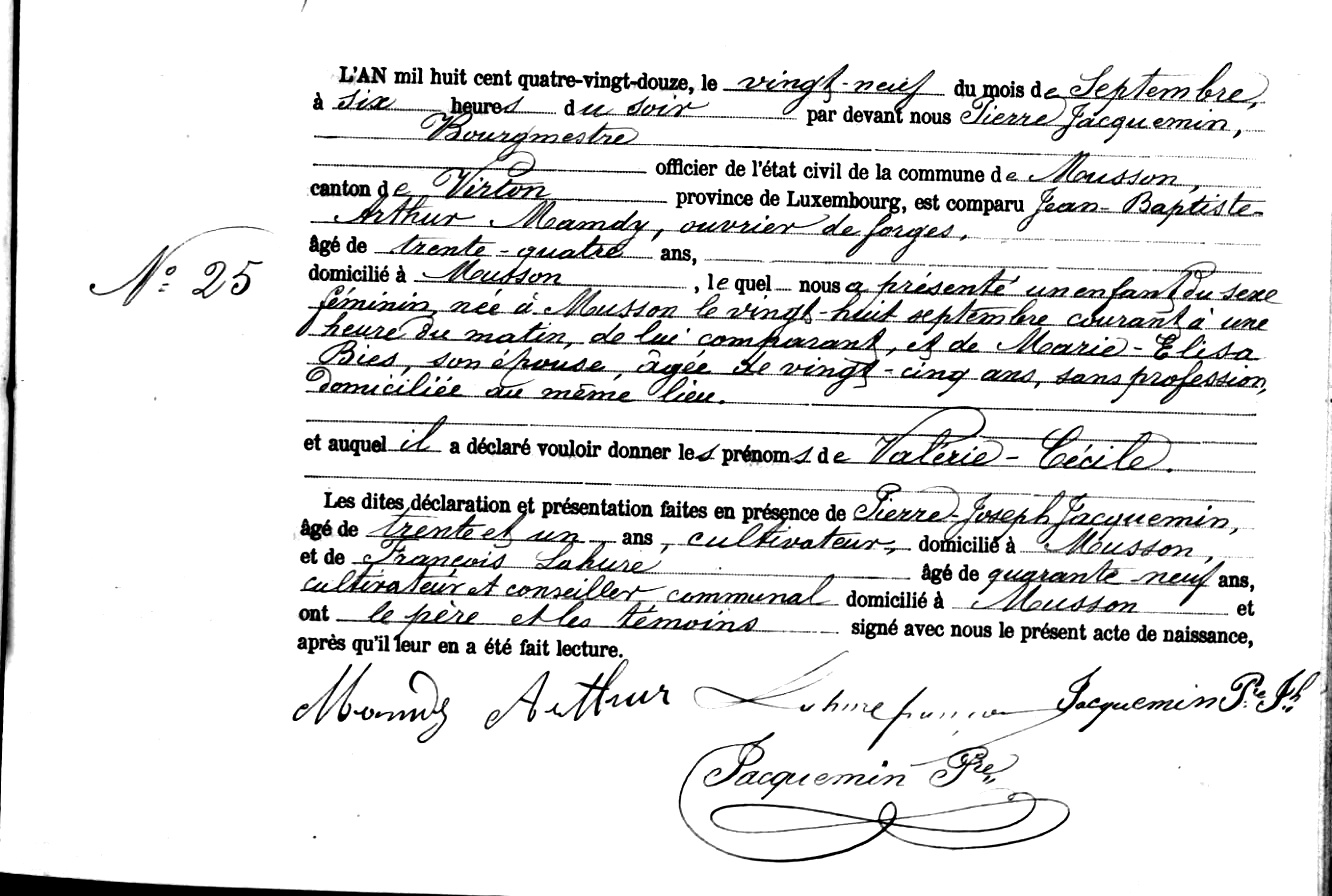 L'AN mil huit cent quatre-vingt-douze, le vingt-neuf du mois de Septembre,
à six heures du soir par devant nous Pierre Jacquemin,
Bourgmestre
officier de l'état civil de la commune de Musson,
canton de Virton province de Luxembourg, est comparu Jean-Baptiste-
Arthur Mamdy, ouvrier de forges,
âgé de trente-quatre ans,
N° 25
domicilié à Musson, le quel nous a présenté un enfant du sexe
féminin, née à Musson le vingt-huit septembre courant à une
heure du matin, de lui comparant, et de Marie-Elisa
Bies, son épouse, âgée de vingt-cinq ans, sans profession,
domiciliée au même lieu.
et auquel il a déclaré vouloir donner les prénoms de Valérie-Cécile.
Les dites déclaration et présentation faites en présence de Pierre-Joseph Jacquemin,
âgé de trente et un ans, cultivateur, domicilié à Musson,
et de François Lahure âgé de quarante-neuf ans,
cultivateur et conseiller communal domicilié à Musson et
ont le père et les témoins signé avec nous le présent acte de naissance,
après qu'il leur en a été fait lecture.
Mamdy Arthur Lahure françois Jacquemin Pre Jh
Jacquemin Pre